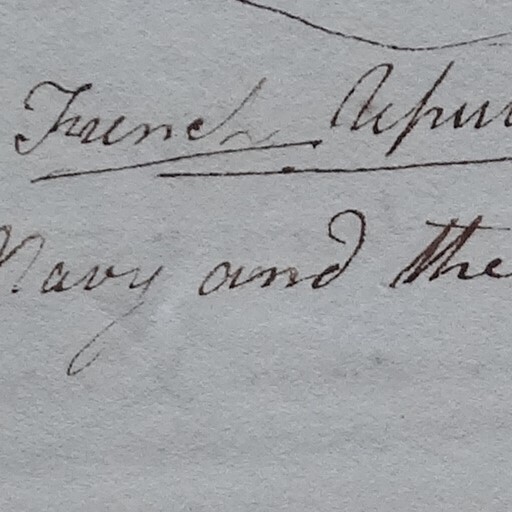 French Repu
Navy and the